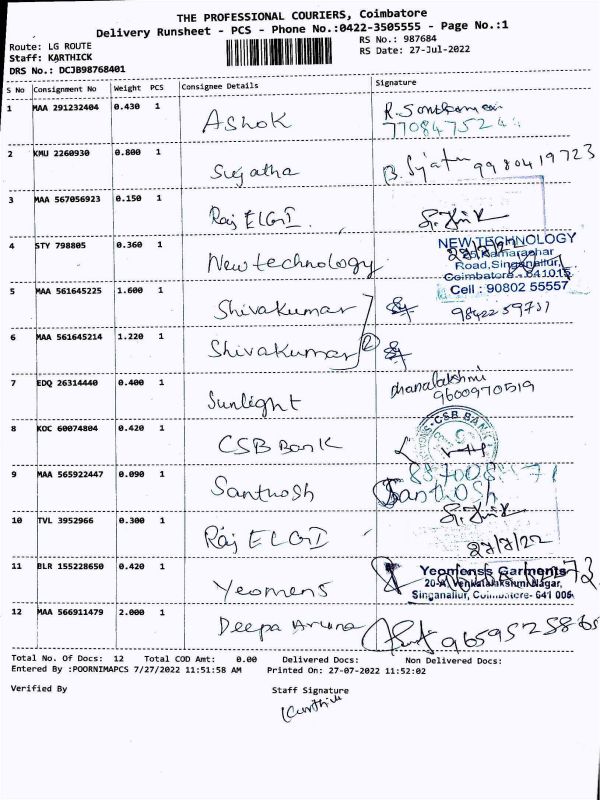 THE PROFESSIONAL COURIERS, Coimbatore
Delivery Runsheet - PCS - Phone No.:0422-3505555 - Page No.:1
Route: LG ROUTE
RS No.: 987684
Staff: KARTHICK
RS Date: 27-Jul-2022
DRS No.: DCJB98768401
S No Consignment No Weight PCS Consignee Details Signature
1 MAA 291232404 0.430 1 Ashok
2 KMU 2260930 0.800 1 Sujatha 9980419723
3 MAA 567056923 0.150 1 Raj ELGI
4 STY 798805 0.360 1 New technology
NEW TECHNOLOGY
Kamarajar
Road, Singanallur,
Coimbatore - 641015
Cell : 90802 55557
5 MAA 561645225 1.600 1 Shivakumar 9842259731
6 MAA 561645214 1.220 1 Shivakumar
7 EDQ 26314440 0.400 1 Sunlight Dhanalakshmi
9600970519
8 KOC 60074804 0.420 1 CSB Bank
CSB BANK
9 MAA 565922447 0.090 1 Santhosh Santhosh
10 TVL 3952966 0.300 1 Raj ELGI
27/7/22
11 BLR 155228650 0.420 1 Yeomens
Yeomenss Garments
Venkatalakshmi Nagar,
Singanallur, Coimbatore- 641 005.
12 MAA 566911479 2.000 1 Deepa Aruna
Total No. Of Docs: 12 Total COD Amt: 0.00 Delivered Docs: Non Delivered Docs:
Entered By :POORNIMAPCS 7/27/2022 11:51:58 AM Printed On: 27-07-2022 11:52:02
Verified By Staff Signature
Karthik